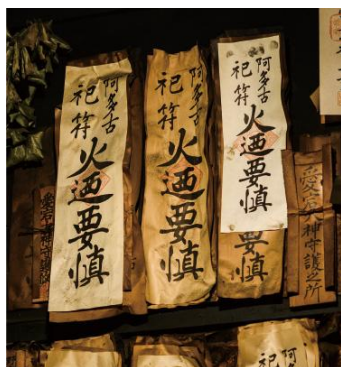 阿多古
祀符
火迺要慎
阿多古
祀符
火迺要慎
阿多古
祀符
火迺要慎
要慎
愛宕大神守護所
阿多
祀符